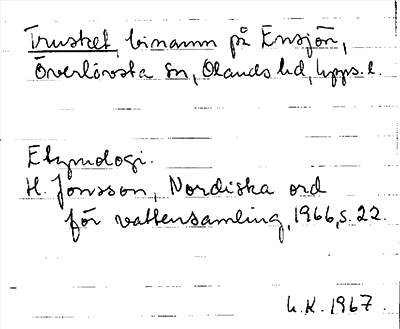 Trusket, binamn på Ensjön,
Överlövsta sn, Olands hd, Upps. l.
Etymologi.
H. Jonsson, Nordiska ord
för vattensamling, 1966, s. 22.
L. K. 1967.